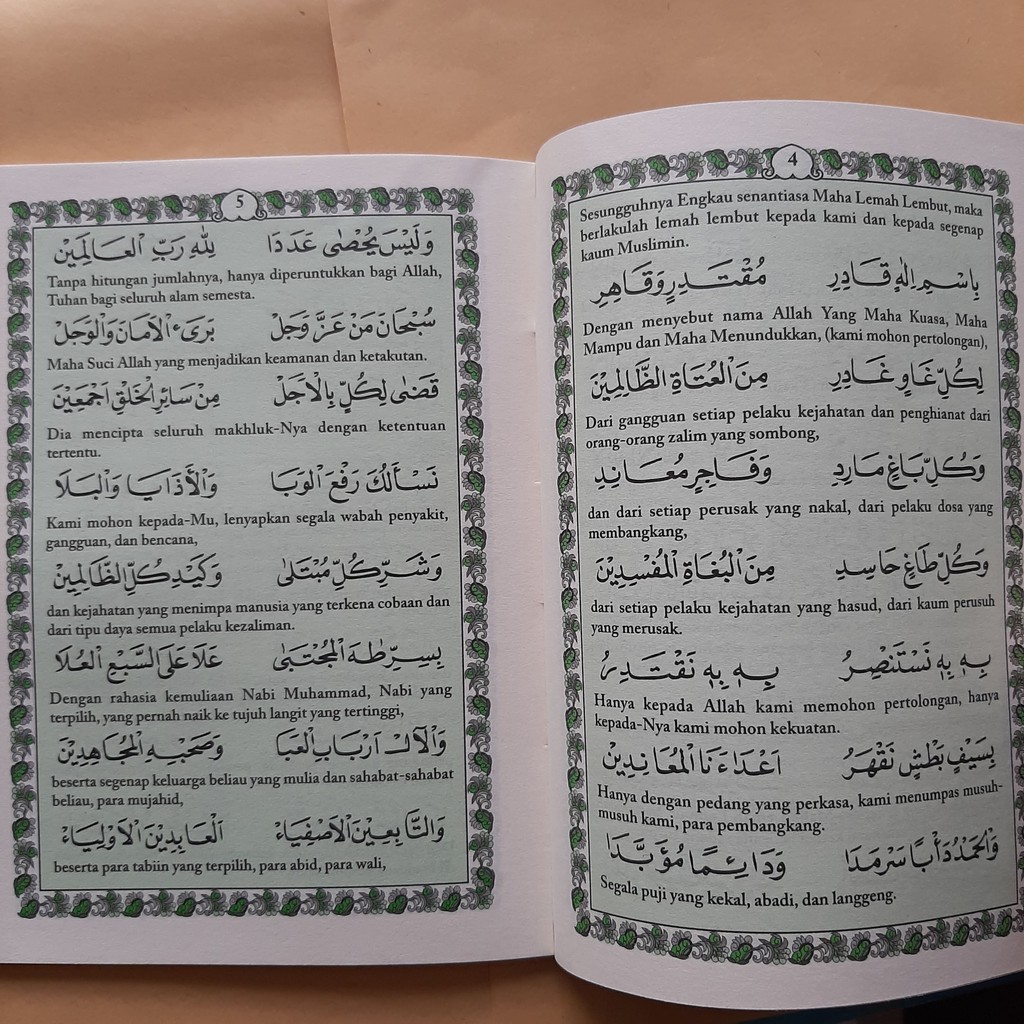 4
Sesungguhnya Engkau senantiasa Maha Lemah Lembut, maka
berlakulah lemah lembut kepada kami dan kepada segenap
kaum Muslimin.
بِاسْمِ اِلٰهٍ قَادِرِ مُقْتَدِرٍ وَقَاهِرِ
Dengan menyebut nama Allah Yang Maha Kuasa, Maha
Mampu dan Maha Menundukkan, (kami mohon pertolongan),
لِكُلِّ غَاوٍ غَادِرِ مِنَ الْعُتَاةِ الظَّالِمِيْنَ
Dari gangguan setiap pelaku kejahatan dan penghianat dari
orang-orang zalim yang sombong,
وَكُلِّ بَاغٍ مَارِدِ وَفَاجِرٍ مُعَانِدِ
dan dari setiap perusak yang nakal, dari pelaku dosa yang
membangkang,
وَكُلِّ طَاغٍ حَاسِدِ مِنَ الْبُغَاةِ الْمُفْسِدِيْنَ
dari setiap pelaku kejahatan yang hasud, dari kaum perusuh
yang merusak.
بِهِ بِهِ نَسْتَنْصِرُ بِهِ بِهِ نَقْتَدِرُ
Hanya kepada Allah kami memohon pertolongan, hanya
kepada-Nya kami mohon kekuatan.
بِسَيْفِ بَطْشٍ نَقْهَرُ اَعْدَاءَنَا الْمُعَانِدِيْنَ
Hanya dengan pedang yang perkasa, kami menumpas musuh-
musuh kami, para pembangkang.
وَالْحَمْدُ دَأْبًا سَرْمَدَا وَدَائِمًا مُؤَبَّدَا
Segala puji yang kekal, abadi, dan langgeng.
5
وَلَيْسَ يُحْصٰى عَدَدَا لِلّٰهِ رَبِّ الْعَالَمِيْنَ
Tanpa hitungan jumlahnya, hanya diperuntukkan bagi Allah,
Tuhan bagi seluruh alam semesta.
سُبْحَانَ مَنْ عَزَّ وَجَلْ بَرَىءَ الْاَمَانَ وَالْوَجَلْ
Maha Suci Allah yang menjadikan keamanan dan ketakutan.
قَضٰى لِكُلٍّ بِالْاَجَلْ مِنْ سَائِرِ الْخَلْقِ اَجْمَعِيْنَ
Dia mencipta seluruh makhluk-Nya dengan ketentuan
tertentu.
نَسْأَلُكَ رَفْعَ الْوَبَا وَالْأَذَايَا وَالْبَلَا
Kami mohon kepada-Mu, lenyapkan segala wabah penyakit,
gangguan, dan bencana,
وَشَرِّ كُلِّ مُبْتَلٰى وَكَيْدِ كُلِّ الظَّالِمِيْنَ
dan kejahatan yang menimpa manusia yang terkena cobaan dan
dari tipu daya semua pelaku kezaliman.
بِسِرِّ طٰهَ الْمُجْتَبٰى عَلَا عَلَى السَّبْعِ الْعُلَا
Dengan rahasia kemuliaan Nabi Muhammad, Nabi yang
terpilih, yang pernah naik ke tujuh langit yang tertinggi,
وَالْآلِ اَرْبَابِ الْعَبَا وَصَحْبِهِ الْمُجَاهِدِيْنَ
beserta segenap keluarga beliau yang mulia dan sahabat-sahabat
beliau, para mujahid,
وَالتَّابِعِيْنَ الْاَصْفِيَاءْ اَلْعَابِدِيْنَ الْاَوْلِيَاءْ
beserta para tabiin yang terpilih, para abid, para wali,